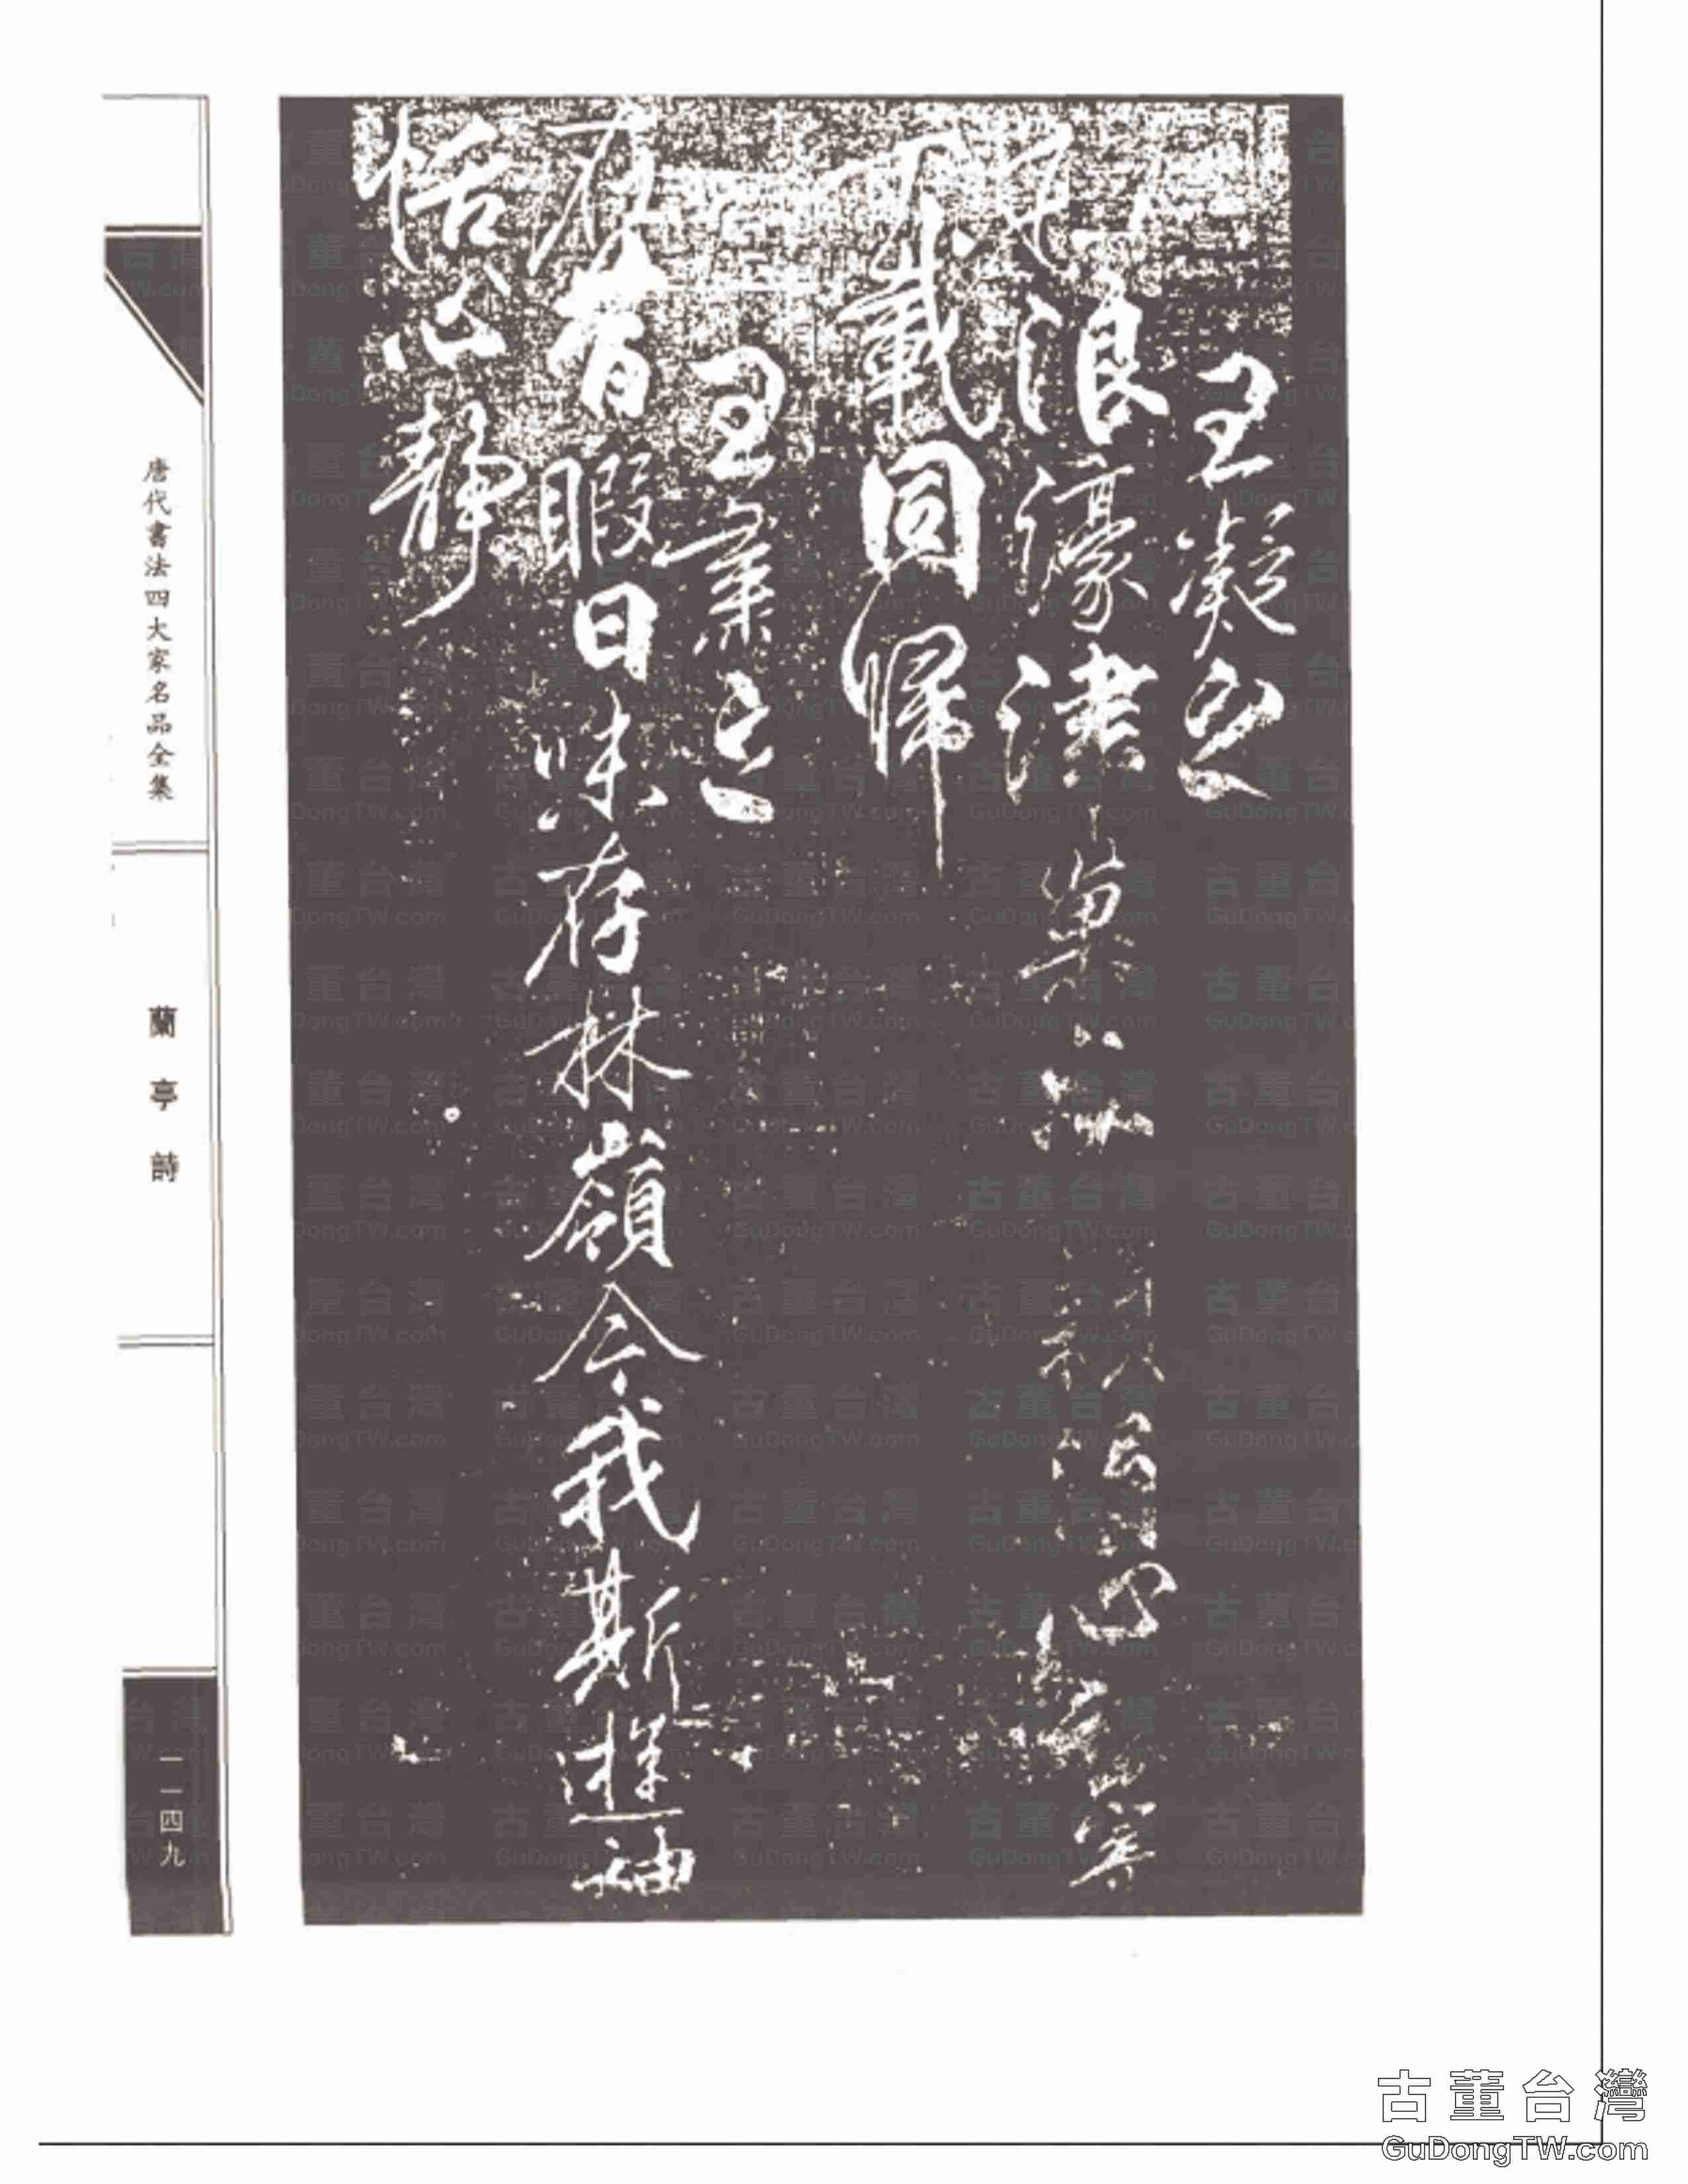 王凝之
浪濠津巢 心
載同歸
王肅之
在昔暇日味存林嶺今我斯遊神
恬心靜
唐代書法四大家名品全集
蘭亭詩
一一四九
古董台灣
GuDongTW.com